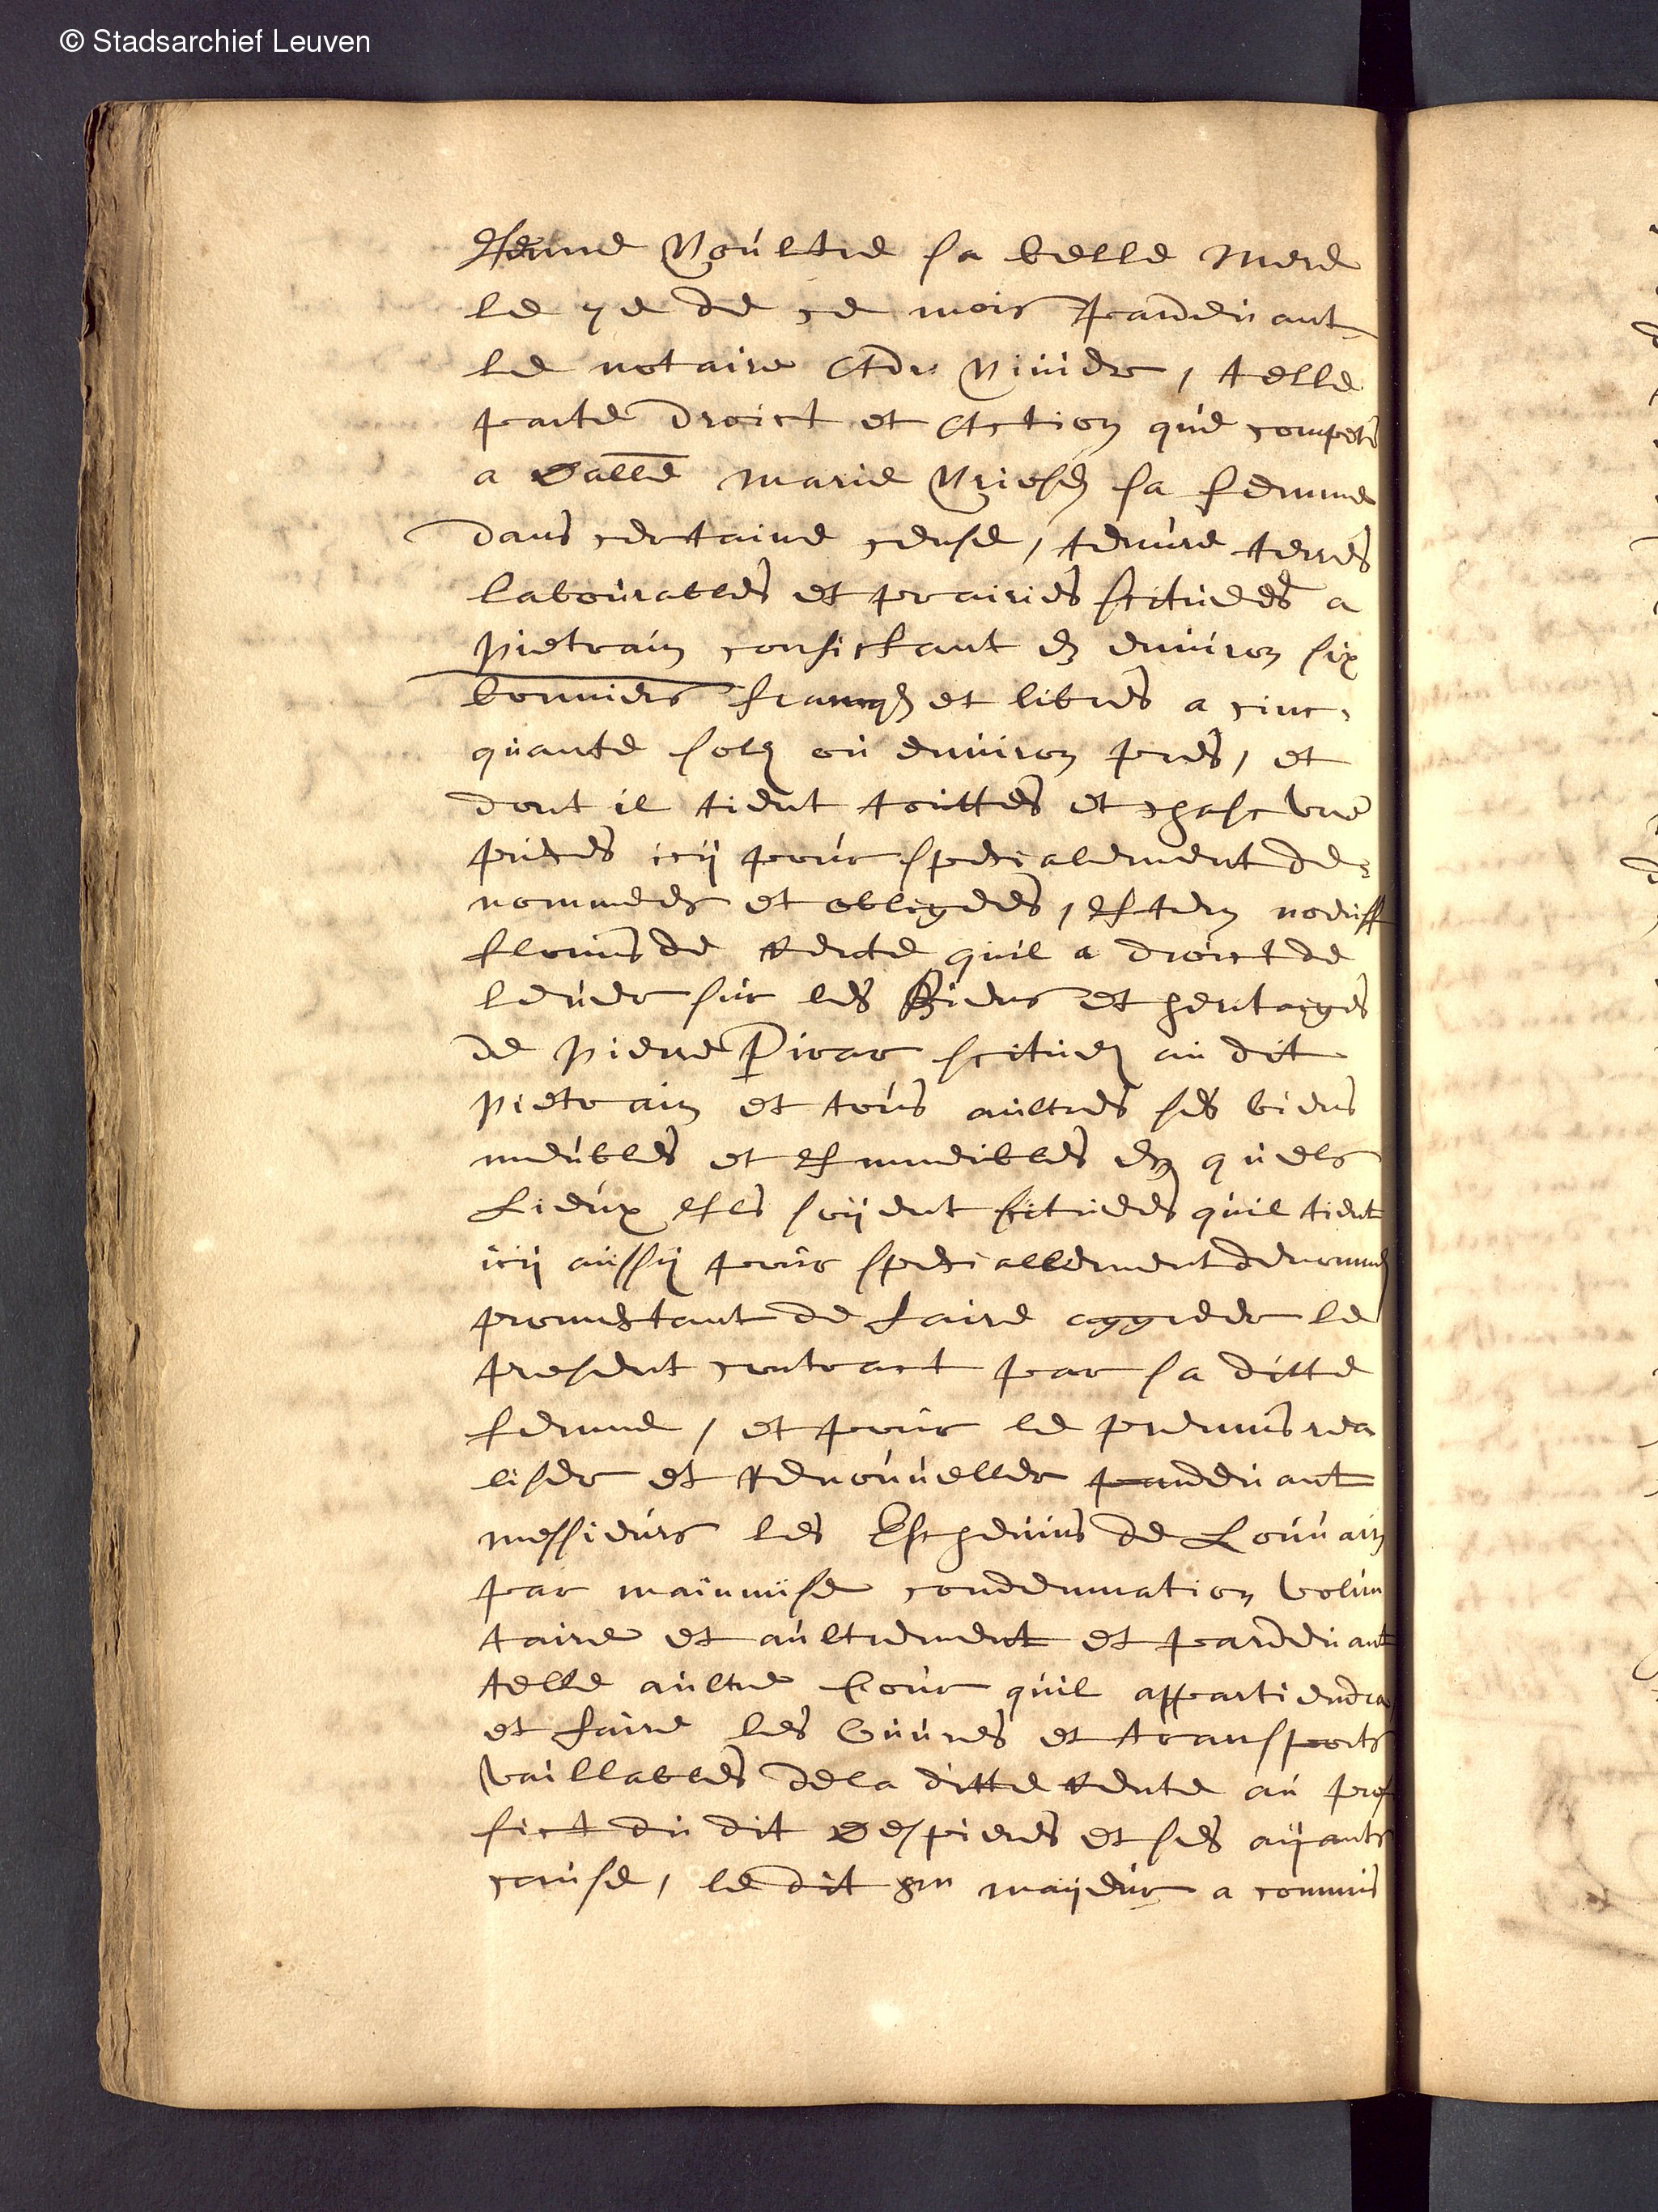 © Stadsarchief Leuven
Jenne Noultre sa belle mere
le 7e de ce mois pardevant
le notaire Adr: , telle
parte droict et action que compete
a Dalle Marie sa femme
dans certaine cense, tenure terres
labourables et prairies scituées a
pietrain consistant en environ six
bonniers francqs et libres a cinc,
quante solz ou environ pres, et
dont il tient touttes et chascune
pieces icy pour specialement de,
nommees et obligees, Item noeuff
florins de rente quil a droict de
lever sur les Biens et heritaiges
de pierre Pirar scituez au dit
pietrain et tous aultres ses biens
meubles et Immeibles en quels
Lieux Ils soyent scituees quil tient
icy aussy pour speciallement denommes
promectant de faire aggreer le
present contract par sa ditte
femme, et pour le premis rea
liser et renouveller pardevant
messieurs les Eschevins de Louvain
par mainmise condemnation volun
taire et aultrement et pardevant
telle aultre Cour quil appartiendra
et faire les œuvres et transports
vaillables de la ditte rente au prof
fict du dit Despieres et ses ayants
cause, le dit Sr mayeur a commis